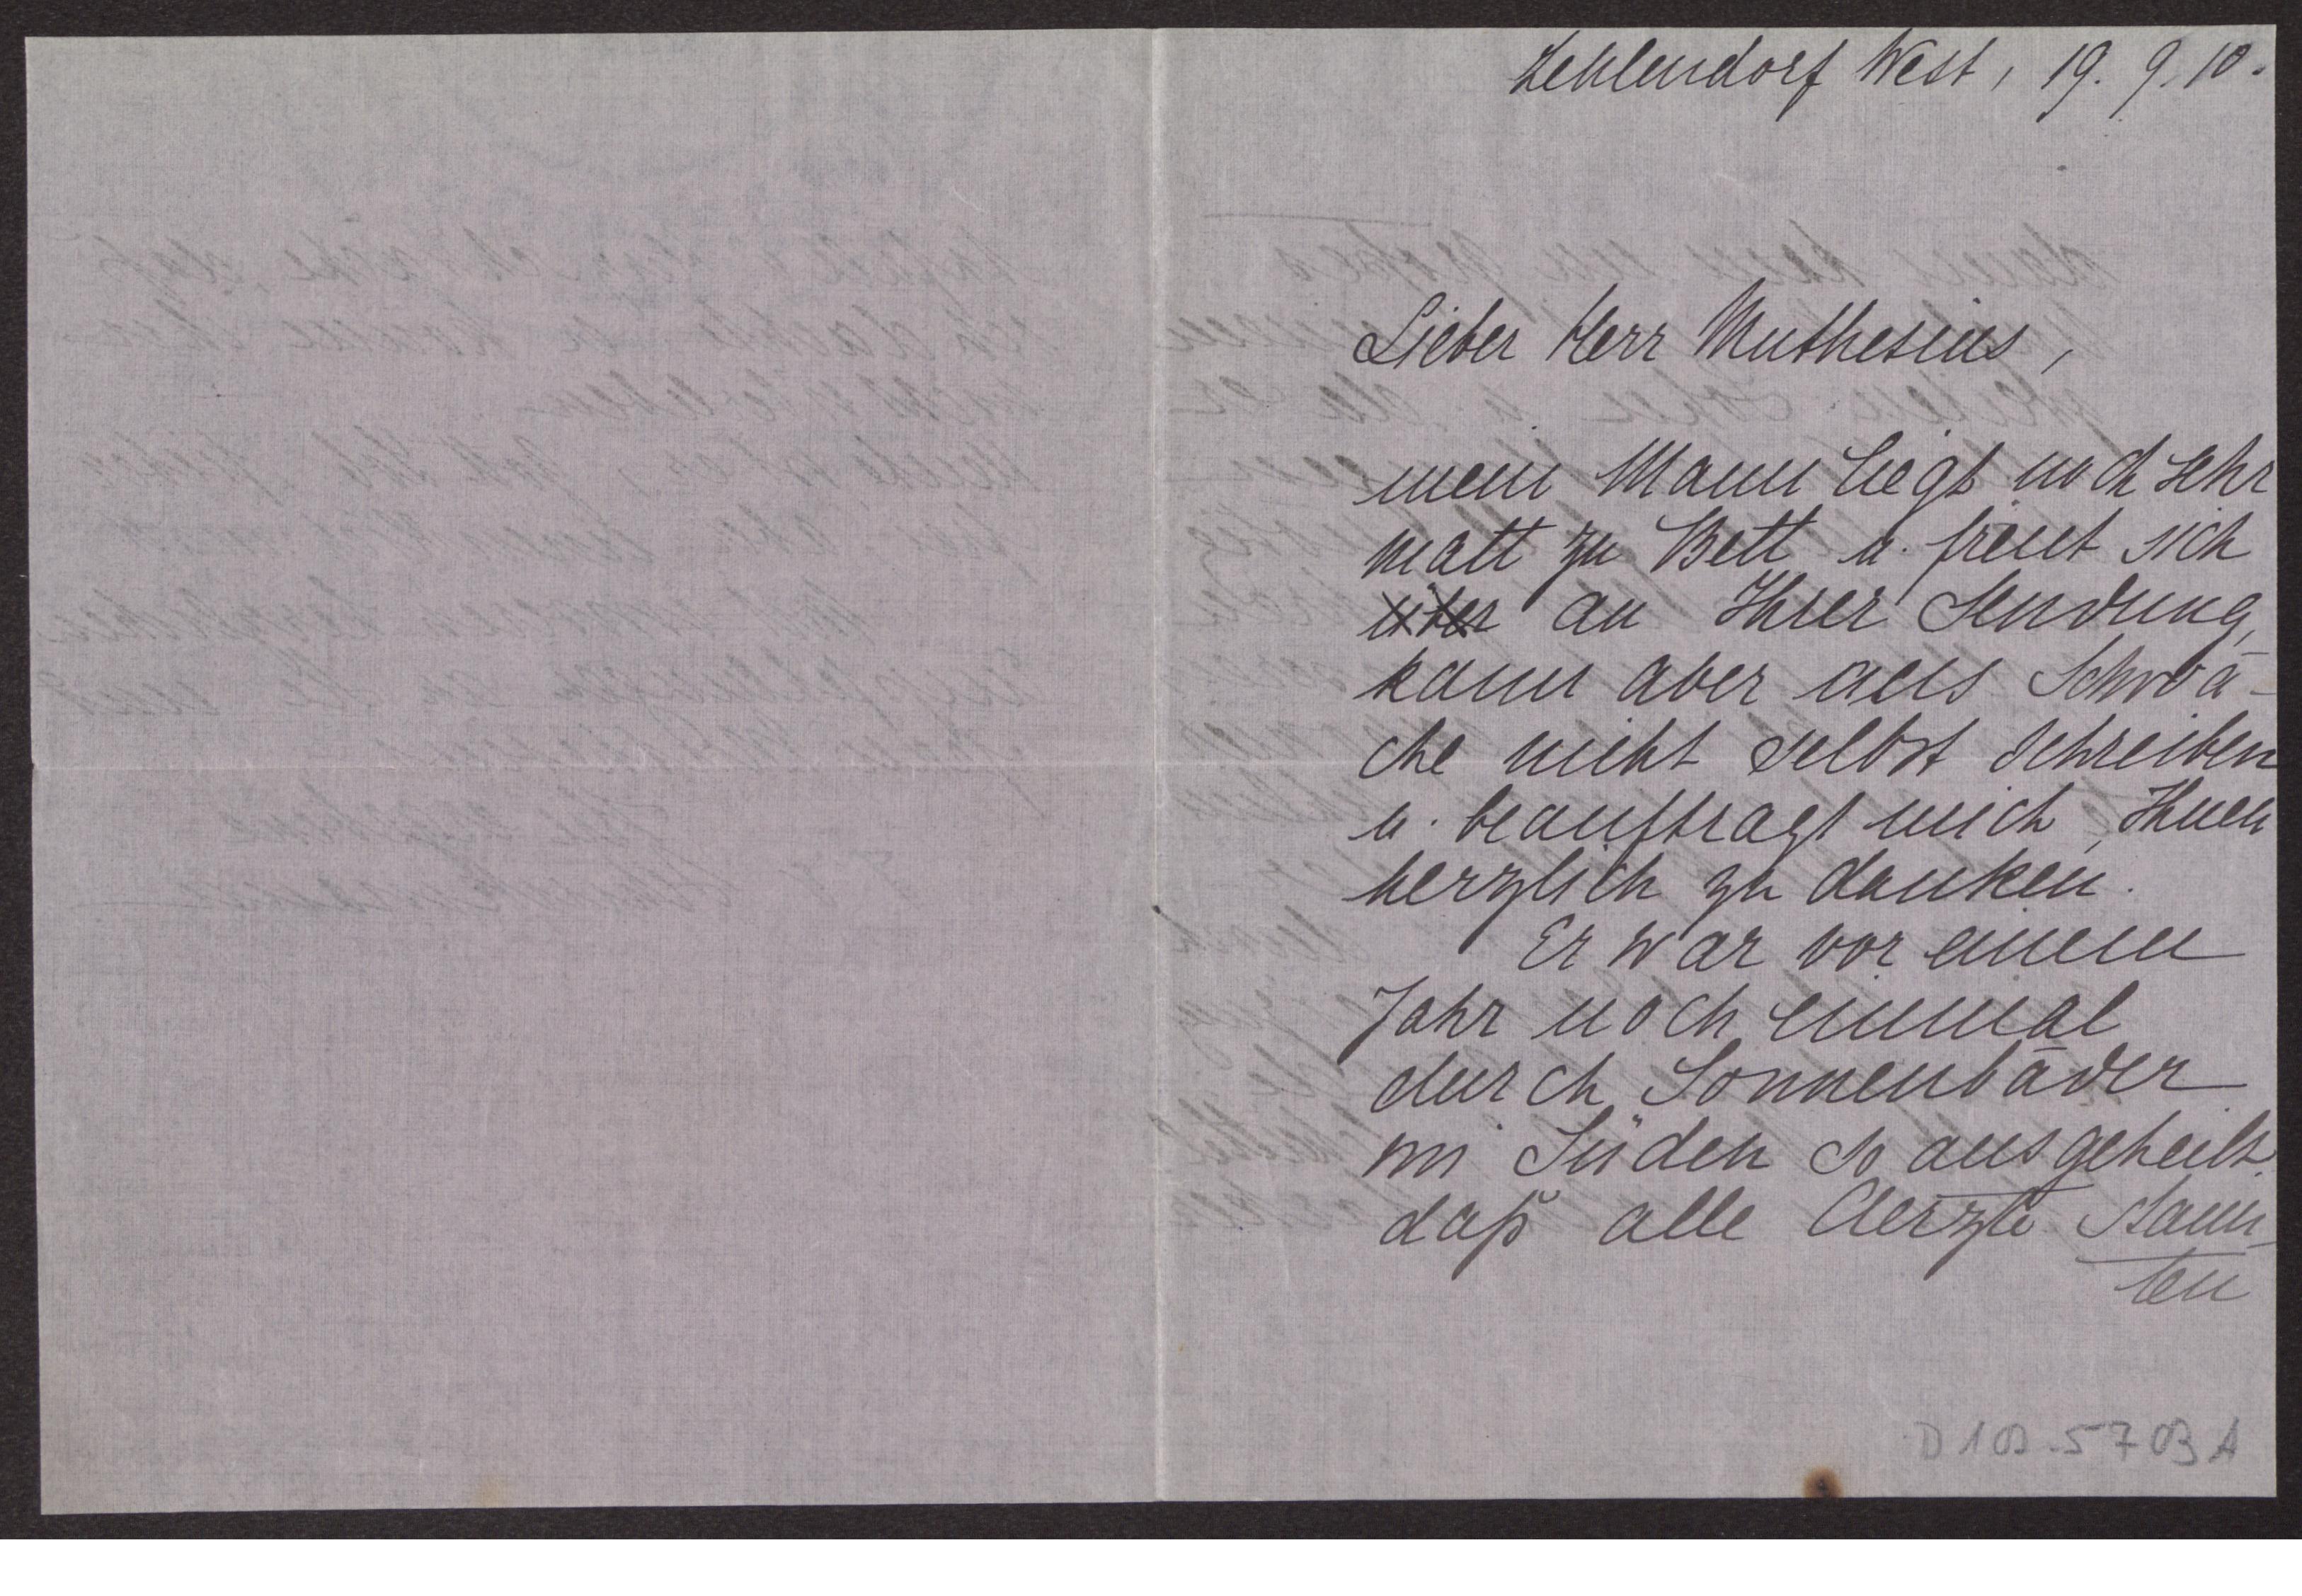 Zehlendorf West, 19. 9. 10.
Lieber Herr Muthesius,
mein Mann liegt noch sehr
matt zu Bett u. freut sich
über an Ihrer Sendung,
kann aber aus Schwä-
che nicht selbst schreiben
u. beauftragt mich, Ihnen
herzlich zu danken.
Er war vor einem
Jahr noch einmal
durch Sonnenbäder
im Süden so ausgeheilt,
daß alle Aerzte staun-
ten
D 103-5703 A